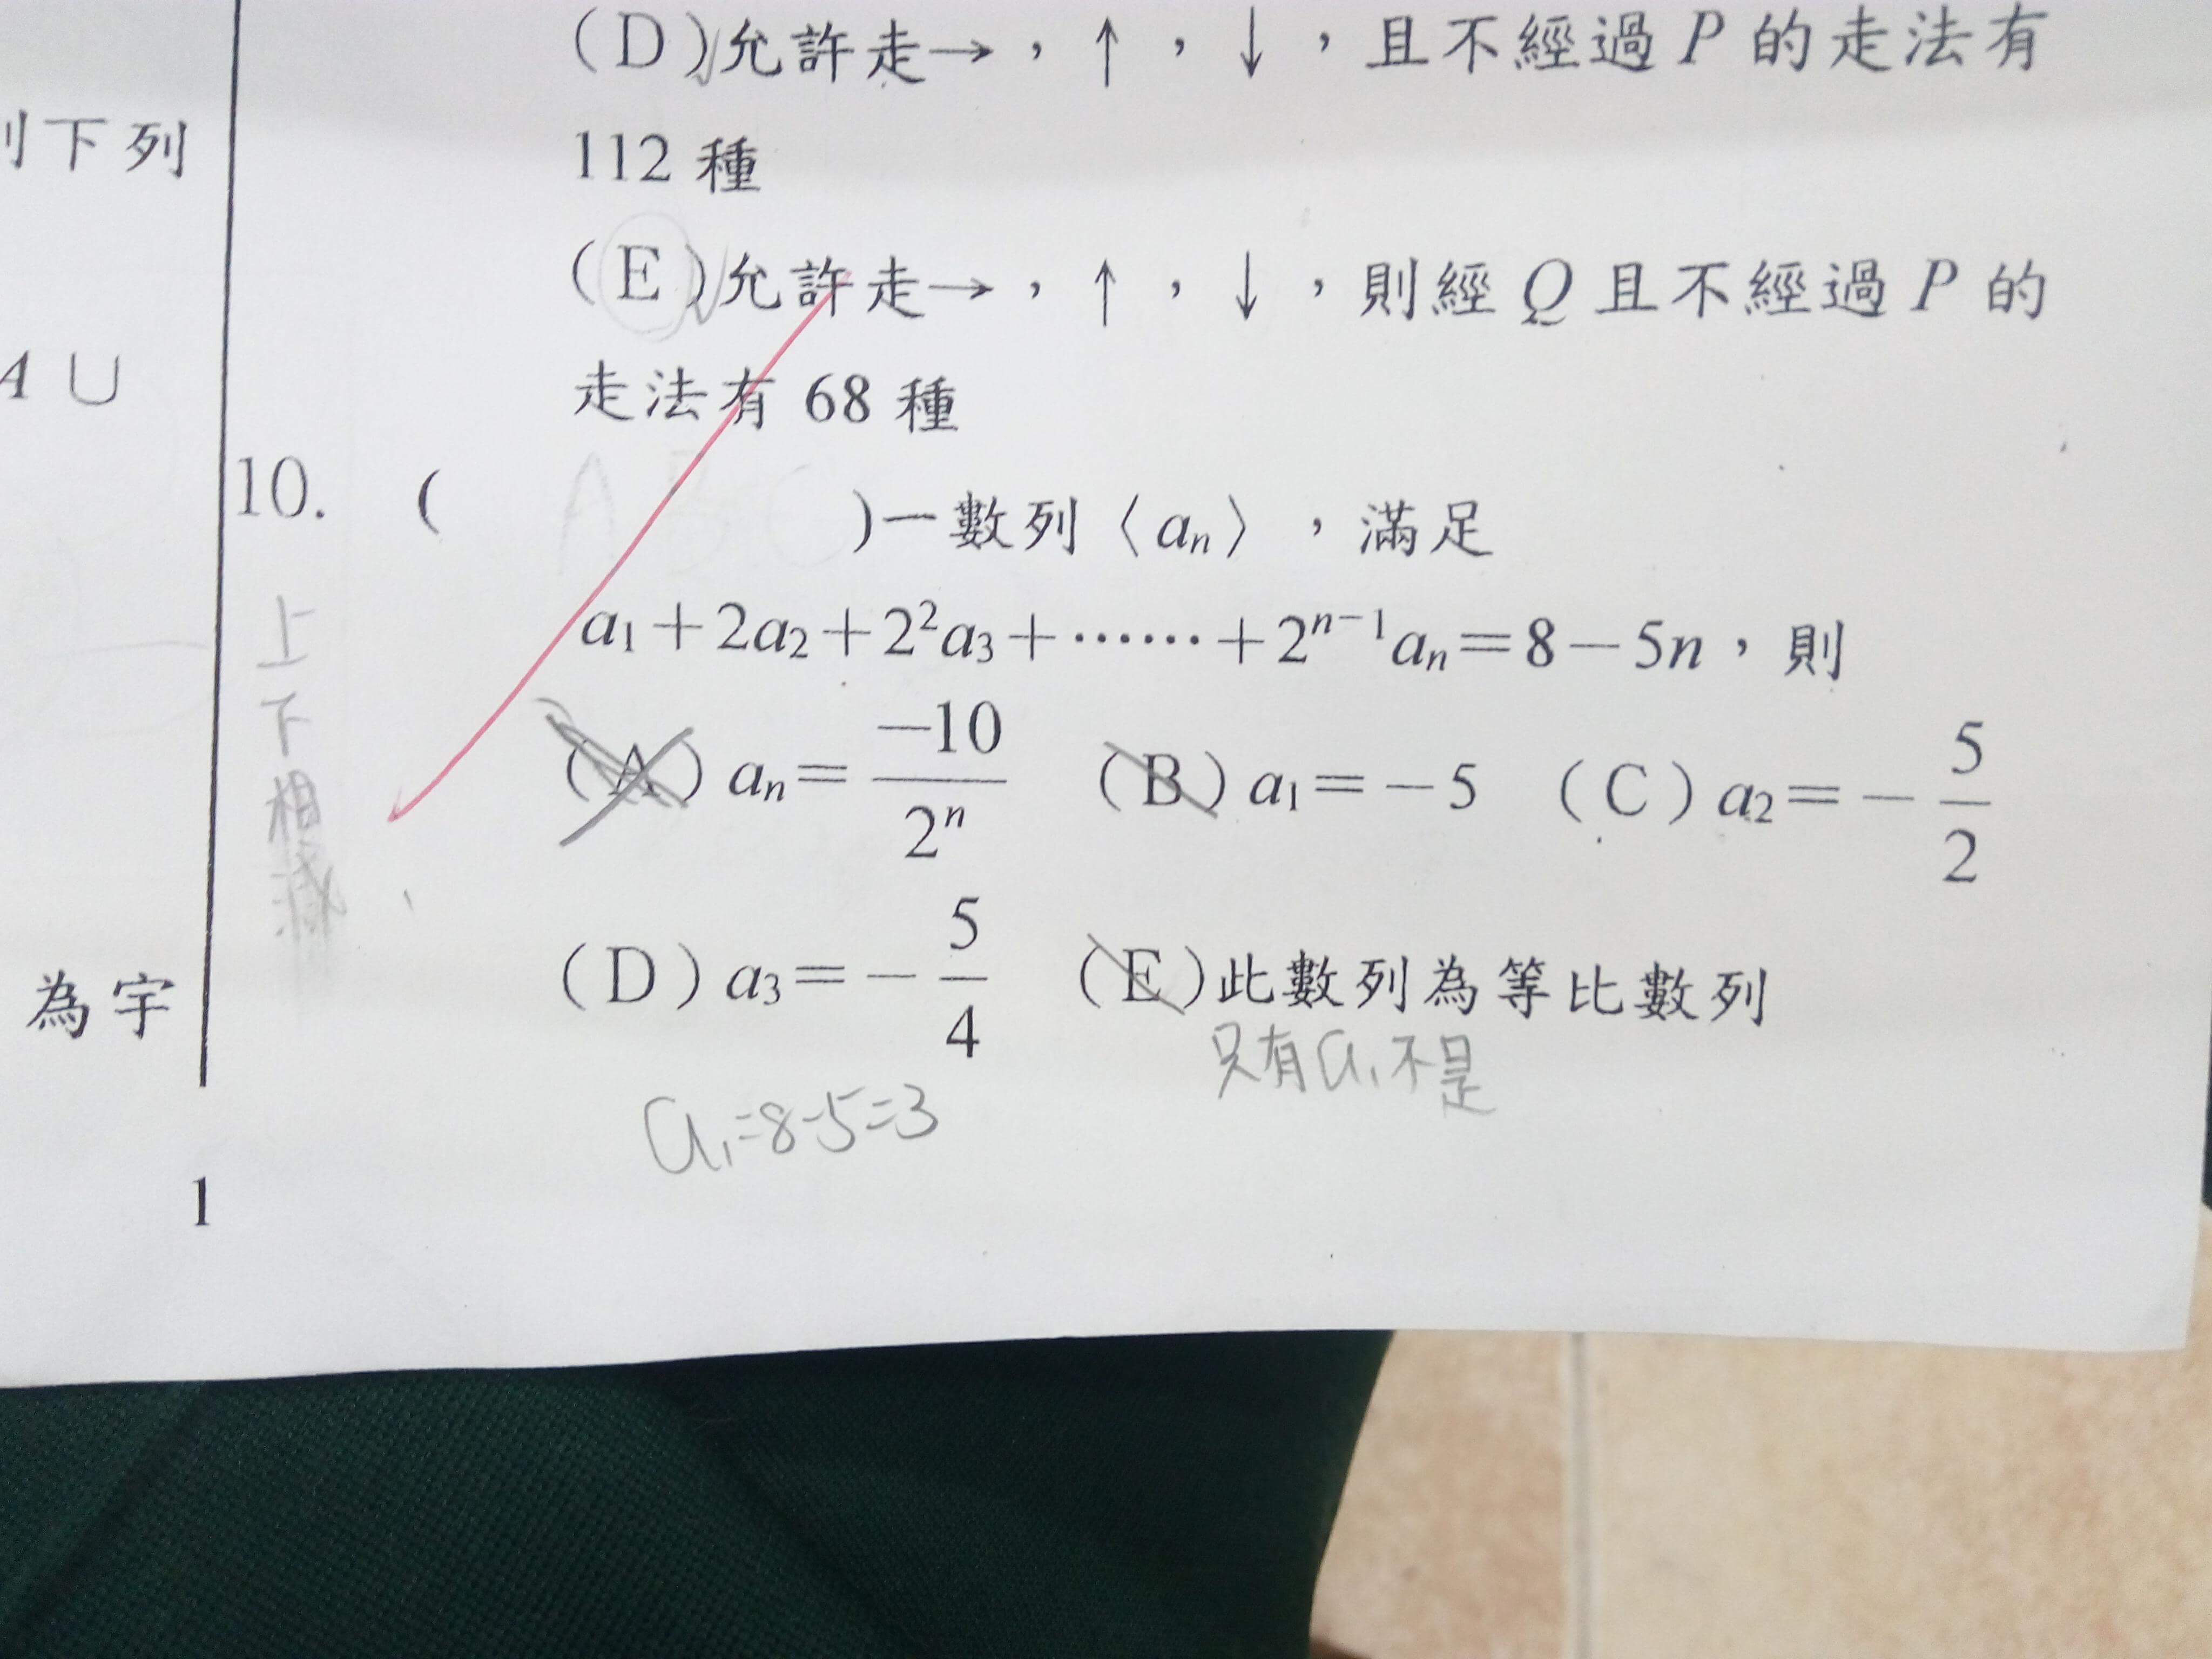 (D)允許走→，↑，↓，且不經過 P 的走法有
112 種
(E)允許走→，↑，↓，則經 Q 且不經過 P 的
走法有 68 種
下列
A ∪
為宇
1
10. ( A B C )一數列〈aₙ〉，滿足
a₁＋2a₂＋2²a₃＋……＋2ⁿ⁻¹aₙ＝8－5n，則
(A) aₙ＝－10/2ⁿ (B) a₁＝－5 (C) a₂＝－5/2
(D) a₃＝－5/4 (E)此數列為等比數列
只有a₁不是
a₁=8-5=3
上下相減